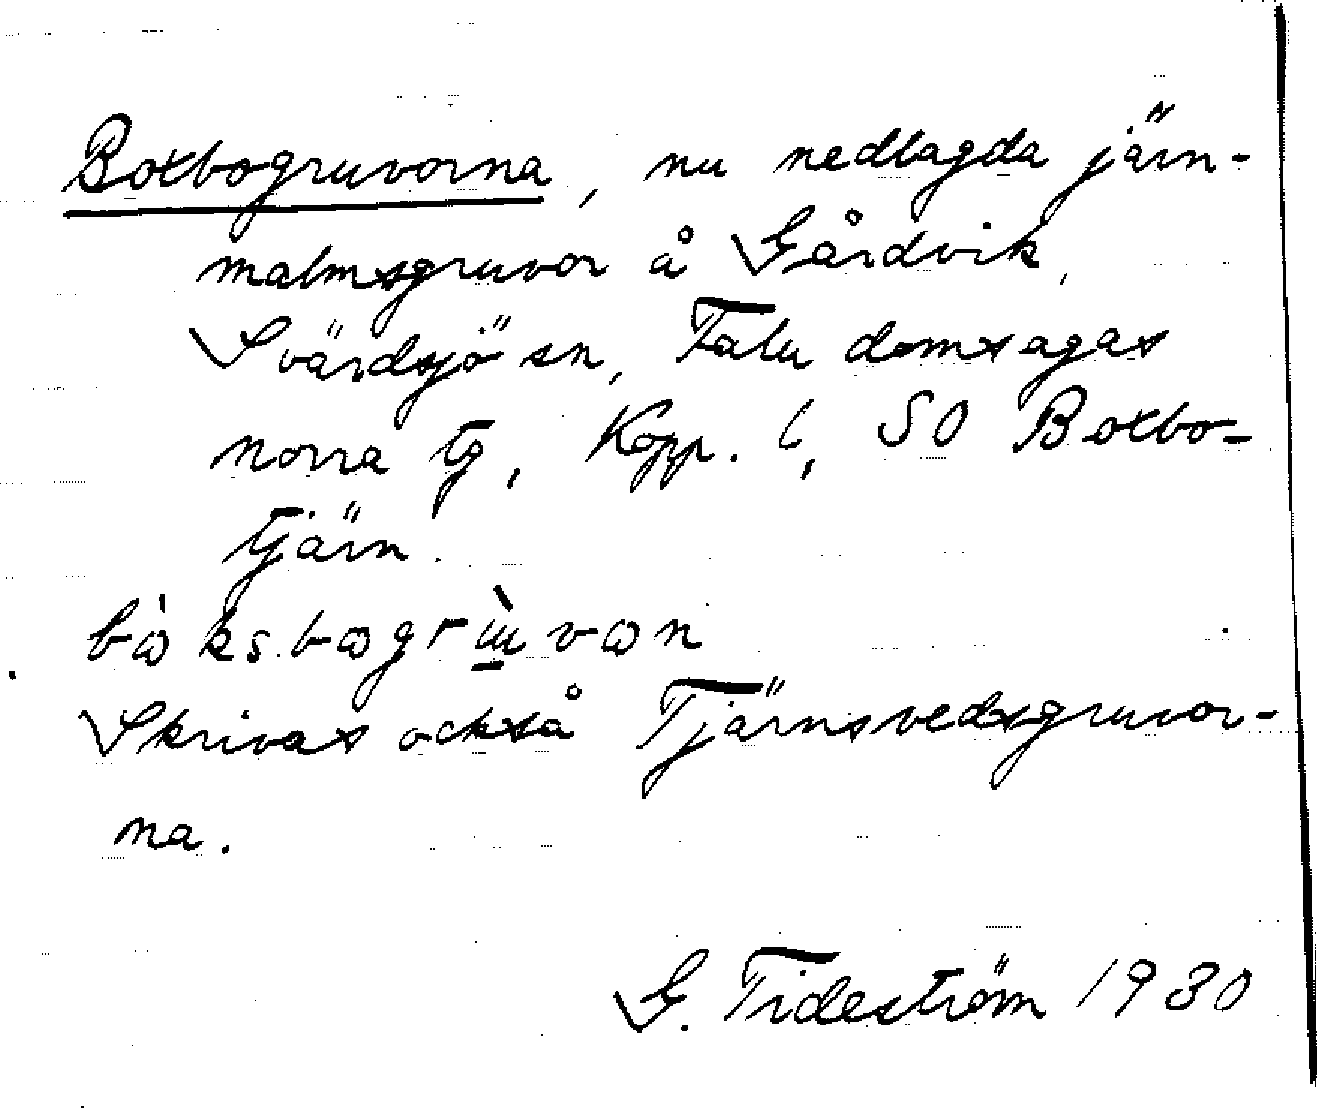 Boxbogruvorna, nu nedlagda järn-
malmsgruvor å Gårdvik,
Svärdsjö sn, Falu domsagas
norra tg, Kopp. l, SO Boxbo-
tjärn.
Skrivas också Tjärnsvedsgruvor-
na.
G. Tideström 1930